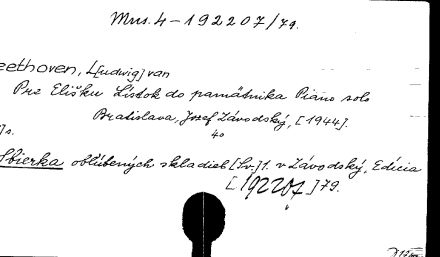 Mus. 4-192207/79.
eethoven, L[udwig] van
Pre Elišku Lístok do pamätníka Piano solo
Bratislava, Jozef Závodský, [1944].
4o
]s.
Sbierka obľúbených skladieb [Sv.] 1. v Závodský, Edícia
[192207] 79.